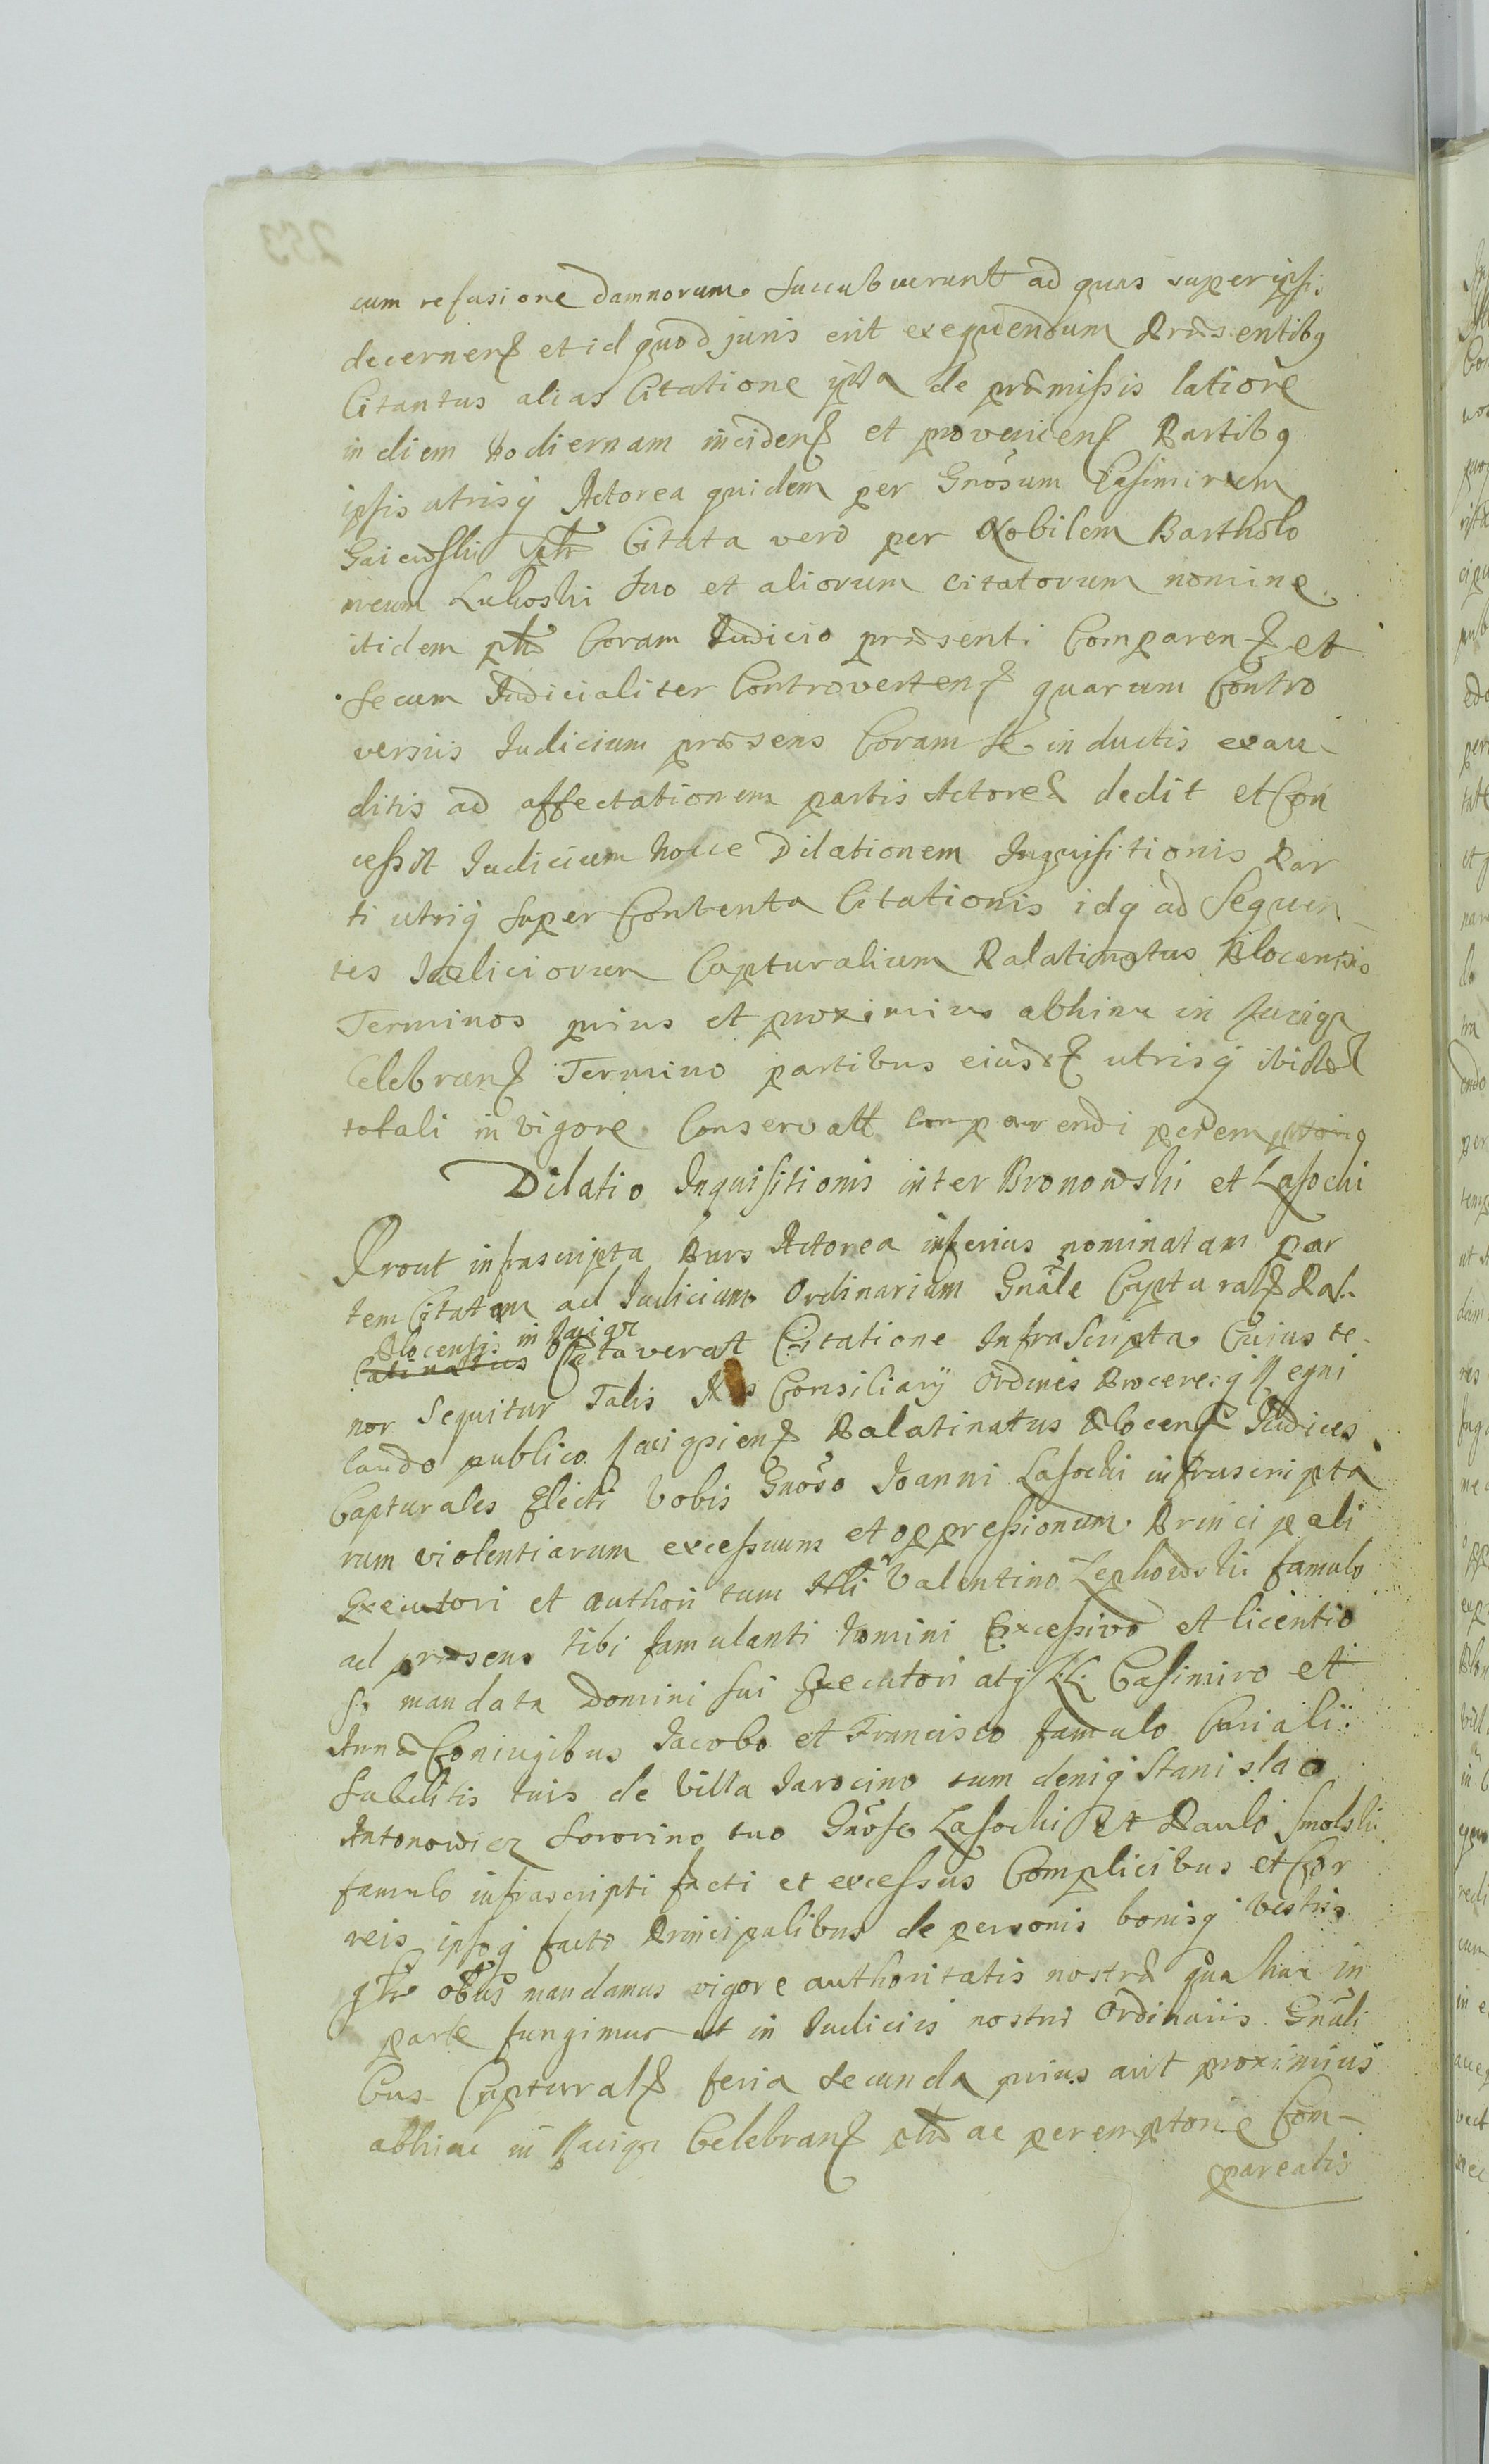 cum refusione damnorum succubuerunt ad quas super ipsi
decernen et id quod juris erit exequendum Præsentibq
Citantus alias Citatione ipsa de præmissis latiore
in diem hodiernam inciden et provenien Partibq
ipsis utrisq Actorea quidem per Gnosum Casimirum
Gaiewski Citata vero per Nobilem Bartholo
meum Lukoski suo et aliorum citatorum nomine
itidem Coram Iudicio præsenti Comparen et
secum Iudicialiter Controverten quarum Contro
versiis Iudicium præsens Coram se inductis exau-
ditis ad affectationem partis Actoreæ dedit et Con
cessit Iudicium hocce Dilationem Inquisitionis Par
ti utriq super Contenta Citationis idq ad Sequen
tes Iudiciorum Capturalium Palatinatus Plocensis
Terminos prius et proximius abhinc in Raciąż
Celebran Termino partibus eiusd utrisq ibidem
totali in vigore Conservatt comparendi peremptorie
Dilatio Inquisitionis inter Bronowski et Lasocki
Prout infrascripta Pars Actorea inferius nominatam par
tem Citatam ad Iudicium Ordinarium Gnâle Capturale Pal-
Plocensis in Raciąż
latinatus Citaverat Citatione Infrascripta Cuius te-
nor Sequitur Talis Consiliarij Ordines Proceresq Regni
laudo publico Palatinatus Plocen Iudices
Capturales Electi Vobis Gnoso Joanni Lasocki infrascripta
rum violentiarum excessuum et oppressionum Principali
Executori et authori tum Valentino Zephowski famulo
ad præsens tibi famulanti homini Excessivo et licentio
so mandata Domini sui Executori atq LL Casimiro et
Anna Coniugibus Jacobo et Francisco famulo Curiali
subditis tuis de Villa Jarocino tum deniq Stanislao
Antonowicz Sororino tuo Gnoso Lasocki Et Paulo Smolski
famulo infrascripti facti et excessus Complicibus et Cor
reis ipsoq facto Principalibus de personis bonisq vestris
mandamus vigore authoritatis nostræ qua hac in
parte fungimur ut in Iudiciis nostris Ordinariis Gnâli
bus Capturale feria secunda prius aut proximius
abhinc in Raciąż Celebran ac peremptorie Com-
pareatis